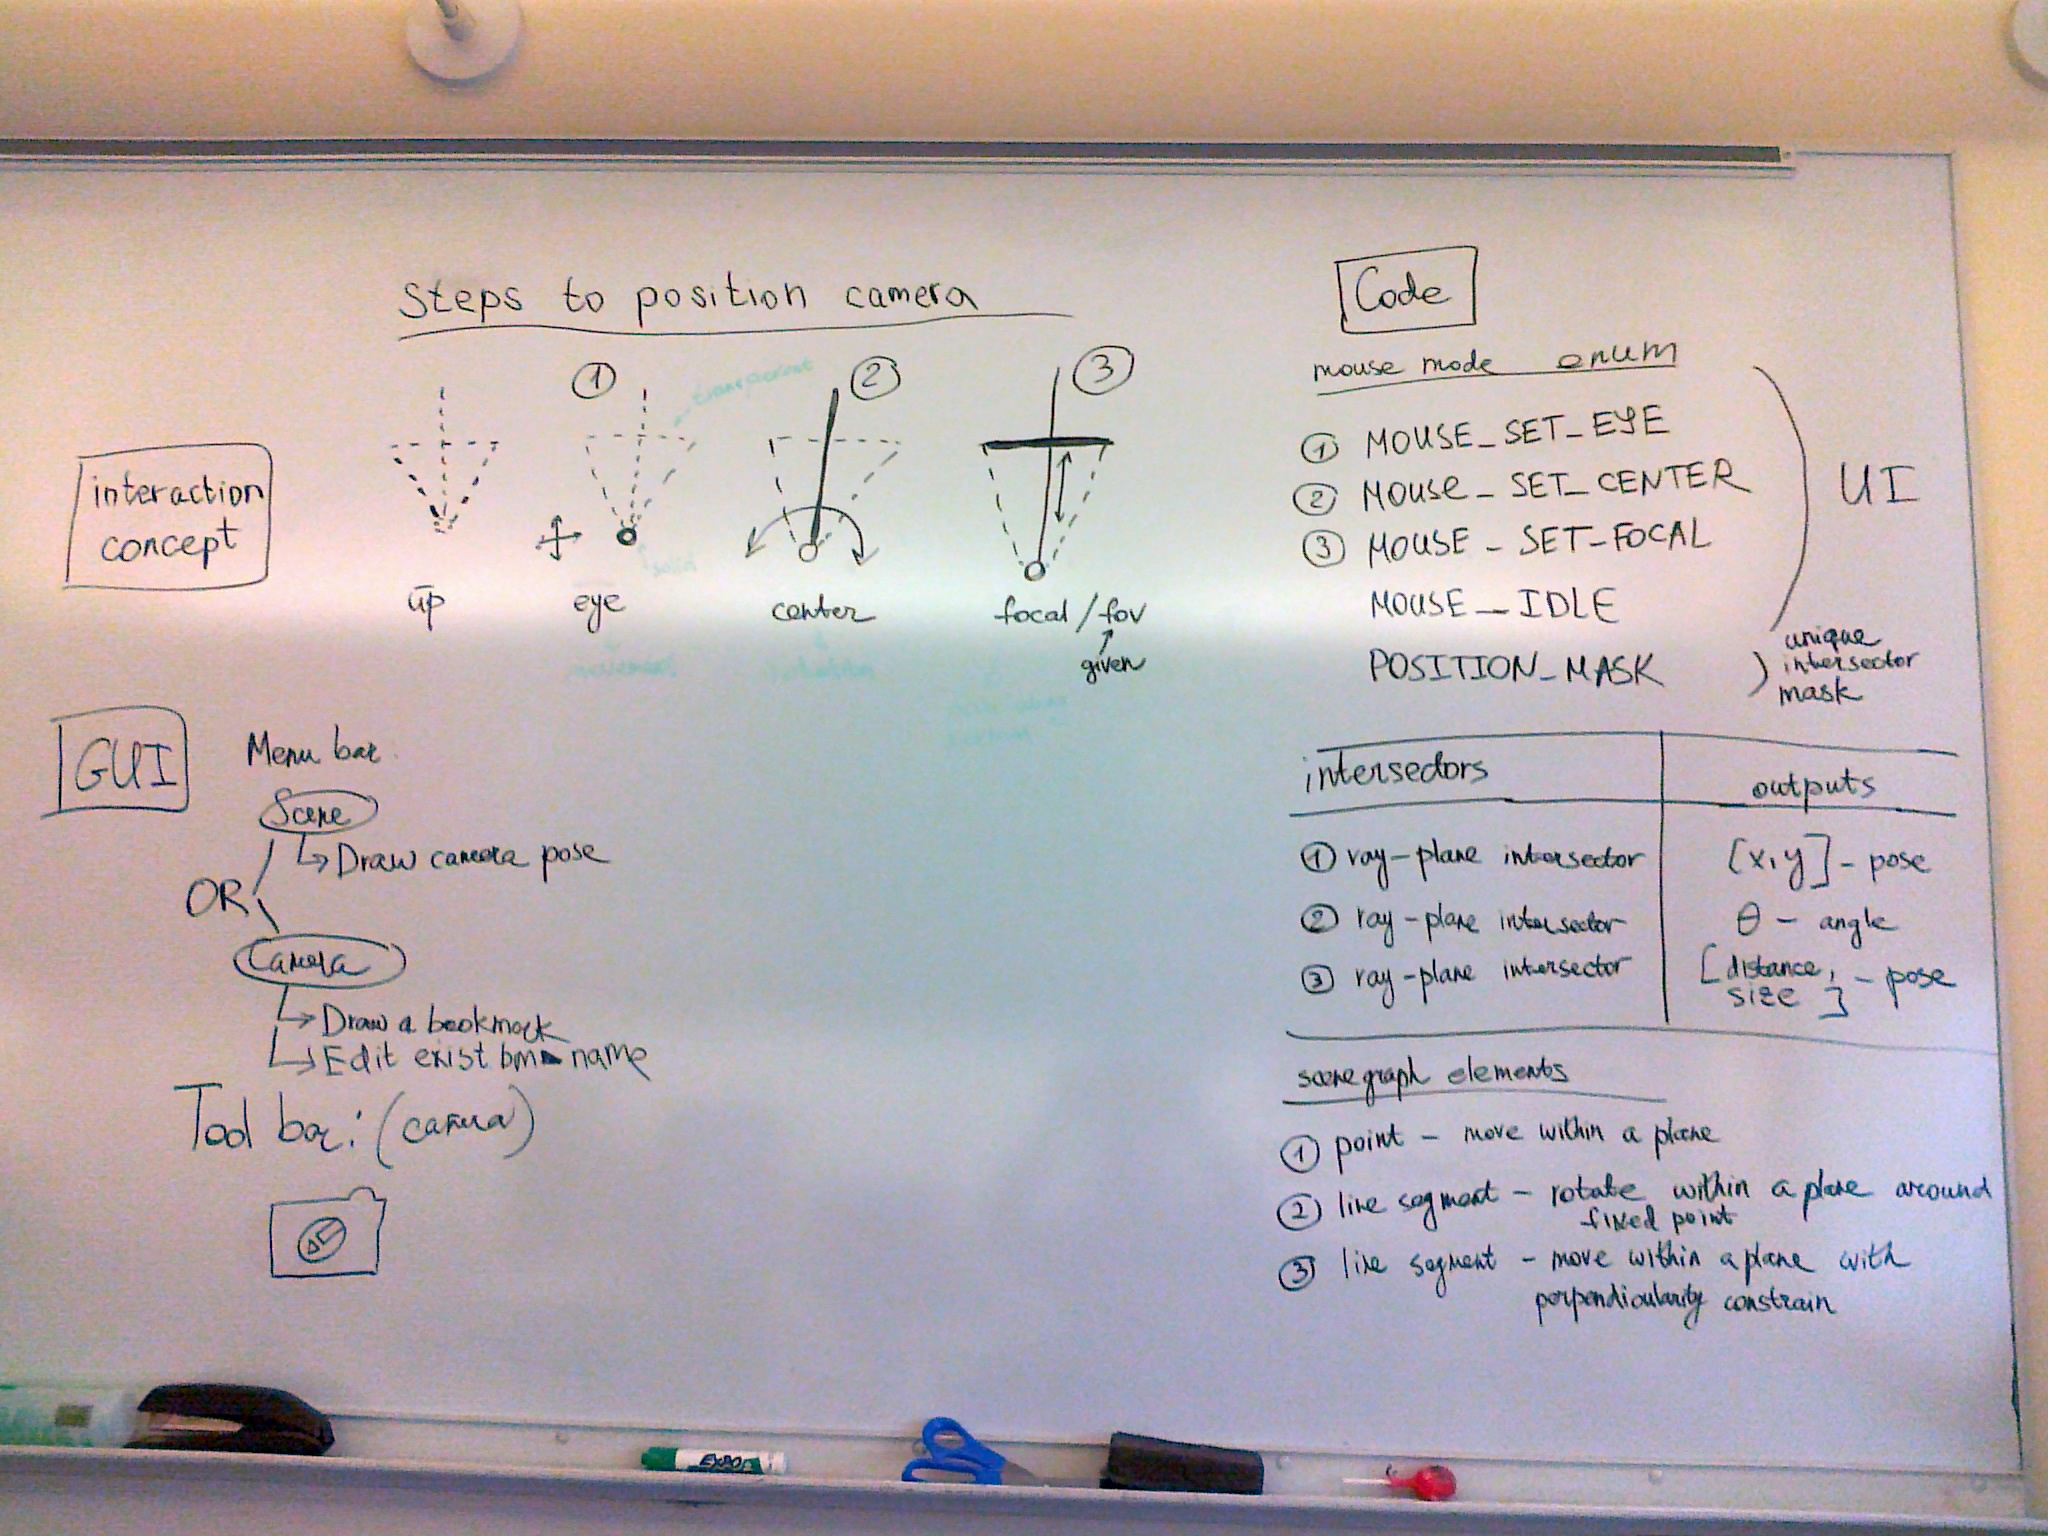 Steps to position camera
interaction
concept
1
2
3
transparent
solid
up
eye
center
focal / fov
given
GUI
Menu bar:
Scene
Draw camera pose
OR
Camera
Draw a bookmark
Edit exist bm name
Tool bar: (camera)
Code
mouse mode enum
1 MOUSE_SET_EYE
2 MOUSE_SET_CENTER
3 MOUSE_SET_FOCAL
MOUSE_IDLE
UI
POSITION_MASK
unique
intersector
mask
intersectors
outputs
1 ray-plane intersector [x,y] - pose
2 ray-plane intersector θ - angle
3 ray-plane intersector [distance, size] - pose
scenegraph elements
1 point - move within a plane
2 line segment - rotate within a plane around
fixed point
3 line segment - move within a plane with
perpendicularity constrain
EXPO